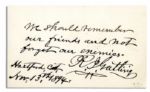 We should remember
our friends and not
forget our enemies.
Hartford, Ct
Nov. 13th 1894